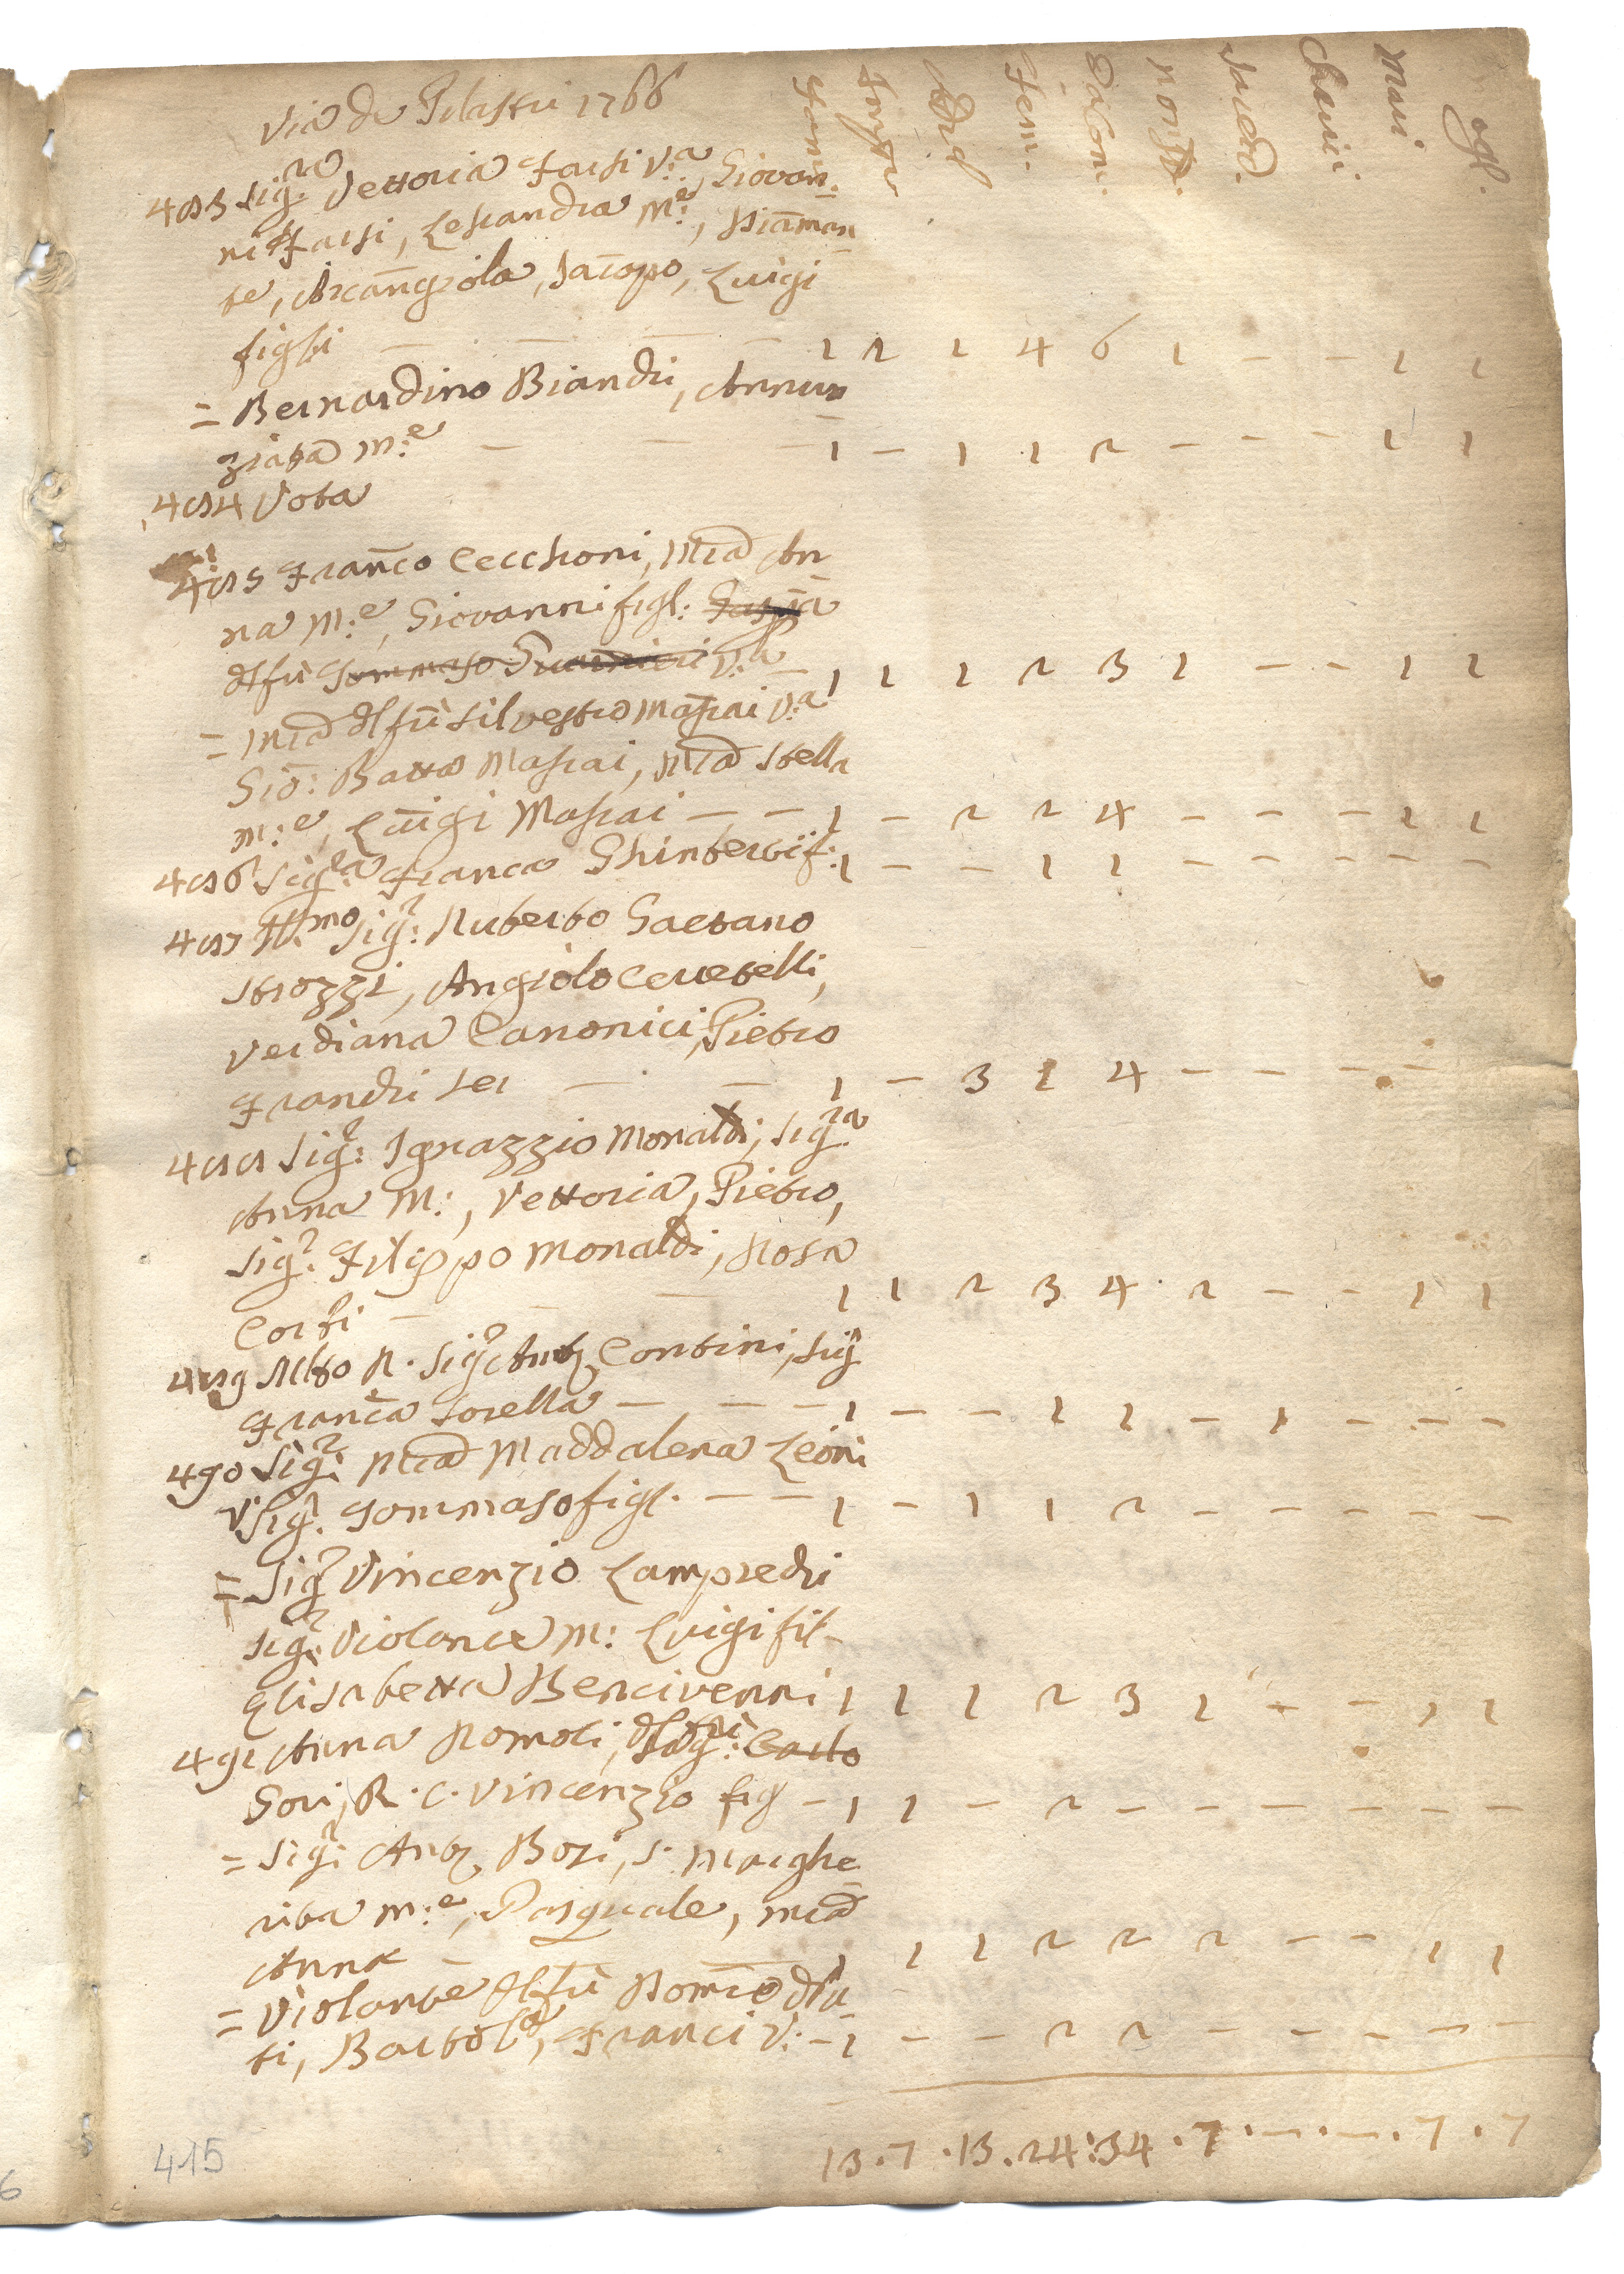 Via de Pilastri 1766
Fam: Impu Adul Fem. Dacom: non D. Sacerd. Cherici Mari ogl.
483 Sig.ra Vettoria Farsi V.a, Giovan:
ni Farsi, Lesandra M.e, Diaman
te, Arcangiola, Iacopo, Luigi
figli — — — — 1 2 1 4 6 1 — — 1 1
= Bernardino Biandi, Annun
ziata m:e — — — 1 — 1 1 2 — — — 1 1
484 Vota
485 Franco Cecchoni, Mia An
na M:e, Giovanni figl:
dl fu Tommaso V:a — 1 1 1 2 3 1 — — 1 1
= Mia dl fu Silvestro Masiai V:a
Gio: Batta Masiai, Mia Stella
m:e, Luigi Masiai — — 1 — 2 2 4 — — — 1 1
486 Sig.ra Franca Ghinterbi f: 1 — — 1 1 — — — — —
487 Ill.mo Sig: Ruberto Gaetano
Strozzi, Angiolo Cervetelli,
Verdiana Canonici, Pietro
Franchi Ser — — 1 — 3 1 4 — — — —
488 Sig: Ignazzio Monaldi, Sig.ra
Anna M:, Vettoria, Pietro,
Sig: Filippo Monaldi, Rosa
Corti — — — 1 1 2 3 4 2 — — 1 1
489 Mto R. Sig: Ant Contini, Sig
Franca Sorella — — — 1 — — 1 1 — 1 — — —
490 Sig: Mia Maddalena Leoni
V Sig. Tommaso figl. — — 1 — 1 1 2 — — — — —
= Sig: Vincenzio Lampredi
Sig: Violante M: Luigi fil-
Elisabetta Bencivenni 1 1 1 2 3 1 — — 1 1
491 Anna Romoli, dl fu Sig: Carlo
Gori, R. C. Vincenzio fig — 1 1 — 2 — — — — — —
= Sig: Ant Bozi, S. Marghe
rita m:e, Pasquale, mia
Anna — — 1 1 1 2 2 2 — — 1 1
= Violante dl fu Romo
ti, Bartola, Franci V: — 1 — — 2 2 — — — — —
13 . 7 . 13 . 24 : 34 . 7 . — . — . 7 . 7
415